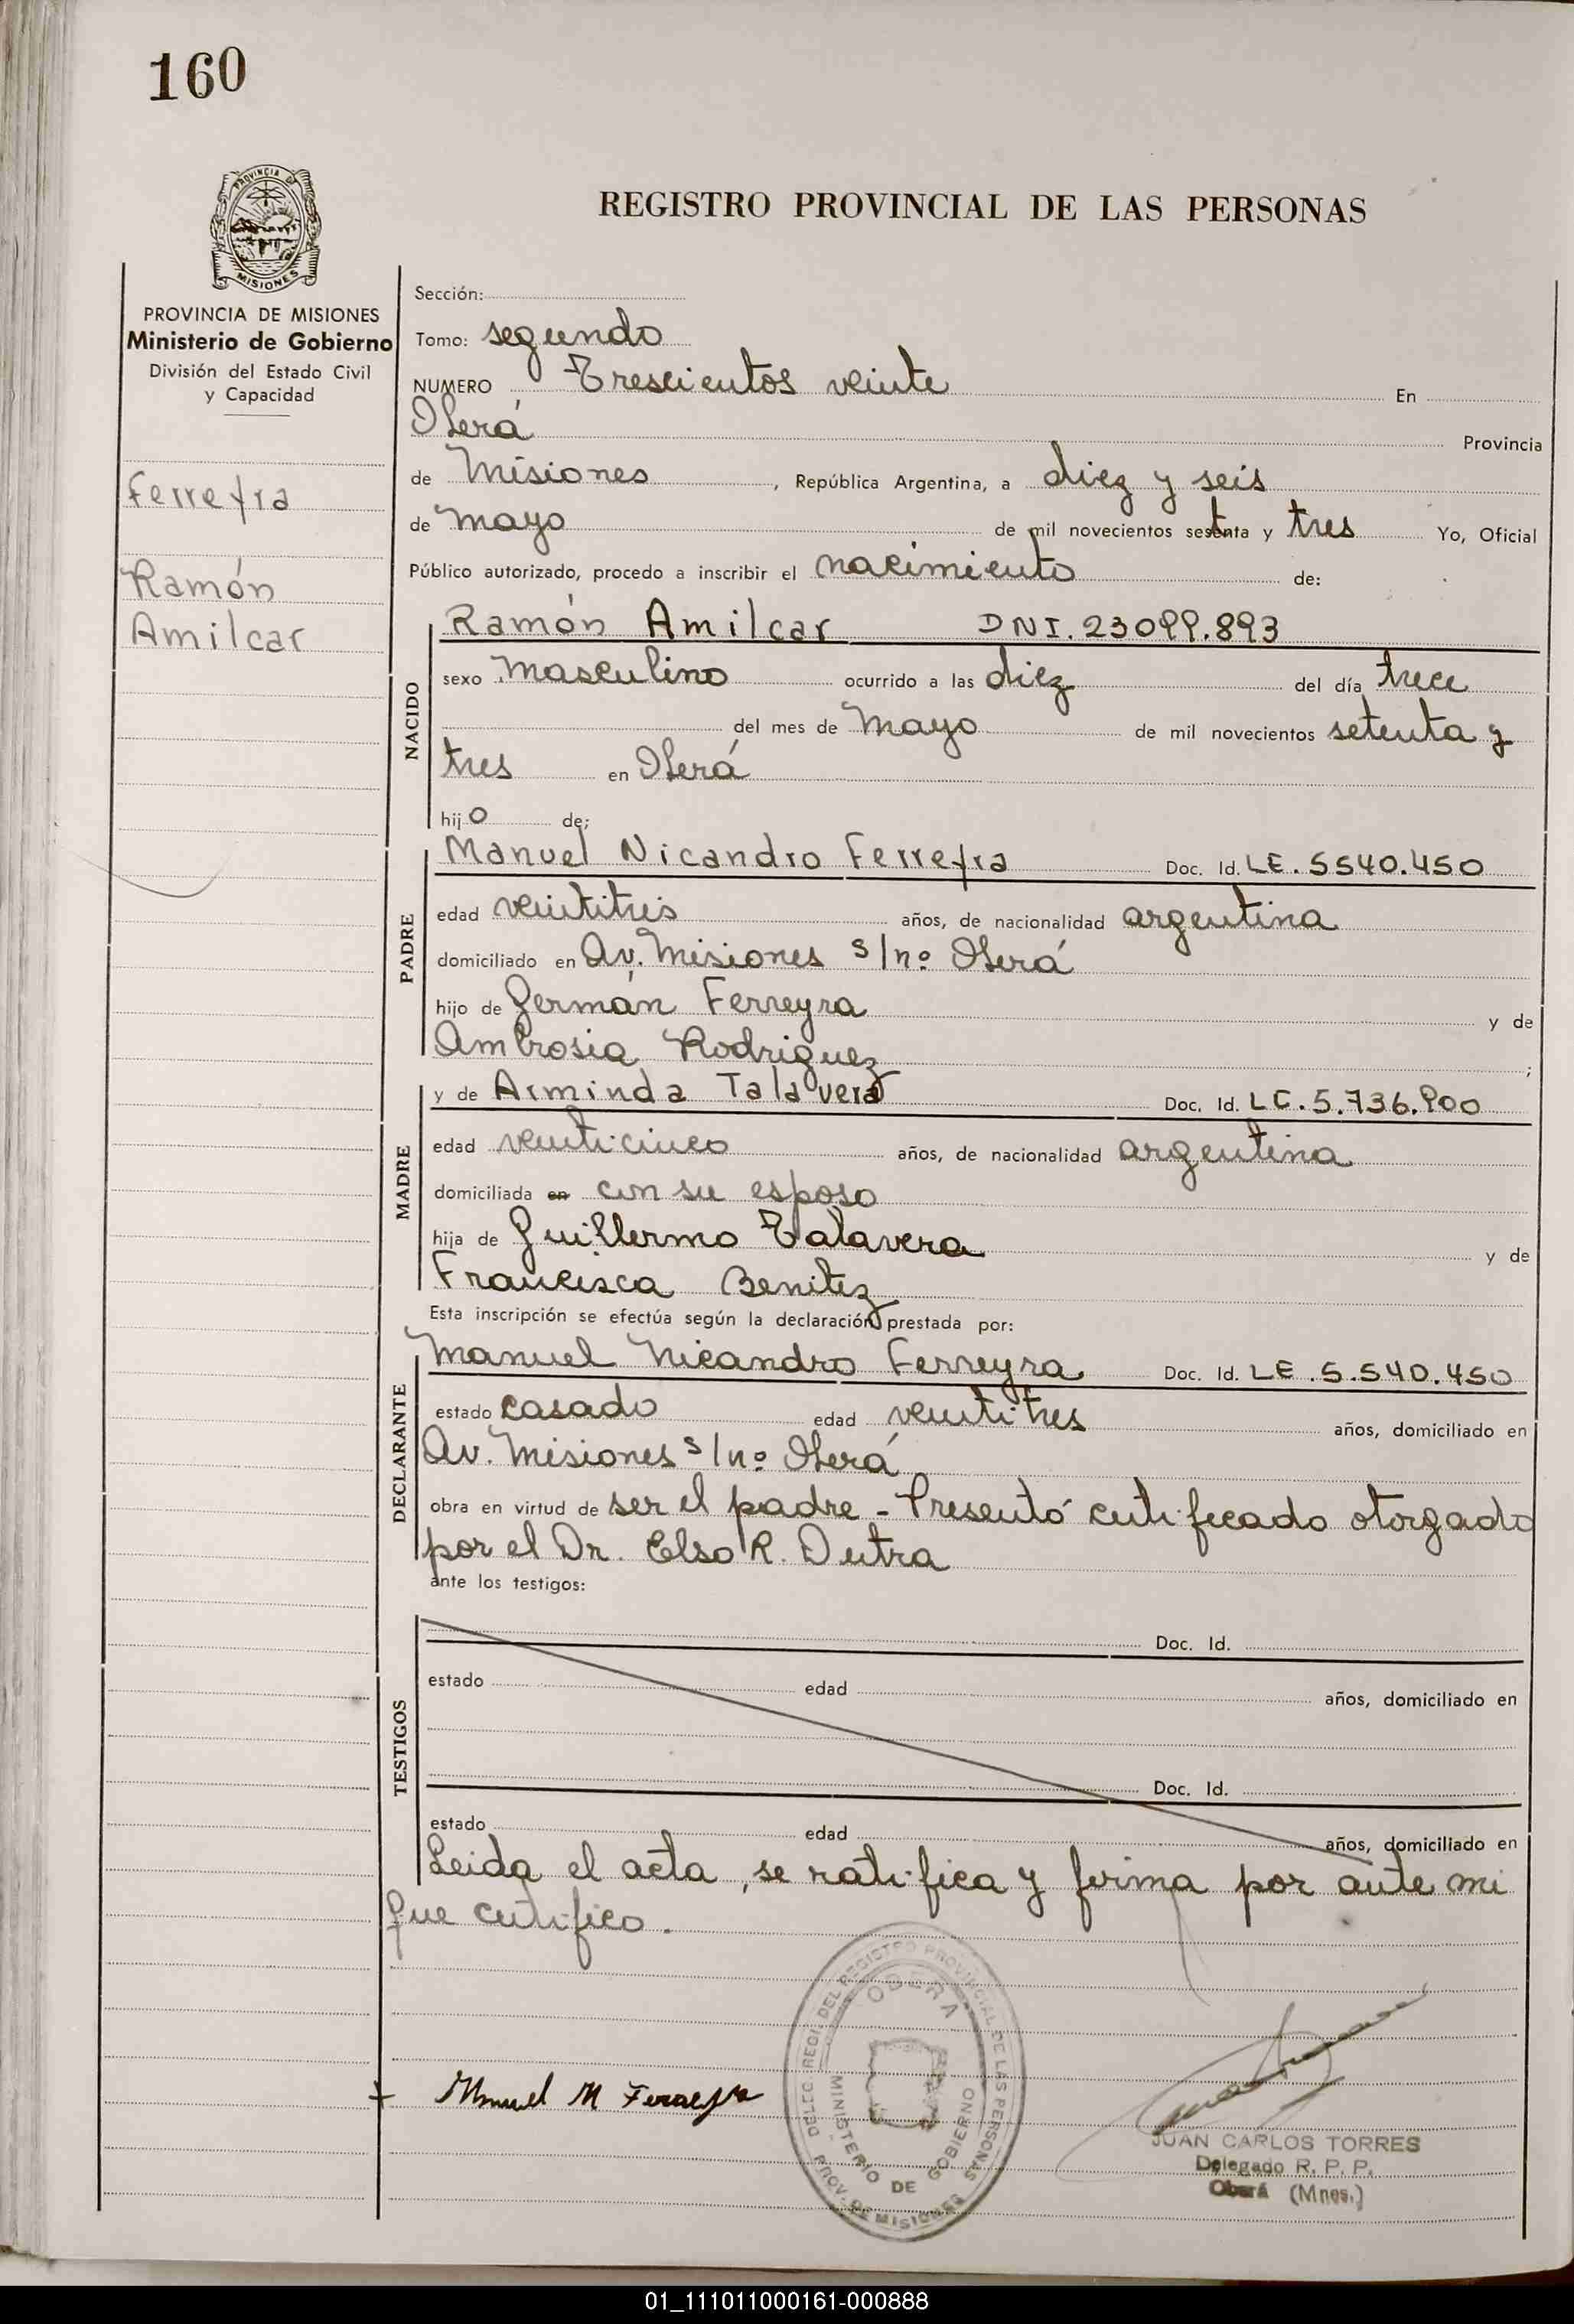 160
PROVINCIA DE
MISIONES
PROVINCIA DE MISIONES
Ministerio de Gobierno
División del Estado Civil
y Capacidad
Ferreyra
Ramón
Amilcar
REGISTRO PROVINCIAL DE LAS PERSONAS
Sección:
Tomo: segundo
NUMERO Trescientos veinte En
Oberá Provincia
de Misiones, República Argentina, a diez y seis
de mayo de mil novecientos setenta y tres Yo, Oficial
Público autorizado, procedo a inscribir el nacimiento de:
NACIDO
Ramón Amilcar DNI. 23099.893
sexo masculino ocurrido a las diez del día trece
del mes de mayo de mil novecientos setenta y
tres en Oberá
hijo de;
PADRE
Manuel Nicandro Ferreyra Doc. Id. LE. 5540.450
edad veintitres años, de nacionalidad argentina
domiciliado en Av. Misiones s/nº Oberá
hijo de Germán Ferreyra y de
Ambrosia Rodriguez ;
MADRE
y de Arminda Talavera Doc. Id. LC. 5.736.900
edad veinticinco años, de nacionalidad argentina
domiciliada en con su esposo
hija de Guillermo Talavera y de
Francisca Benitez
Esta inscripción se efectúa según la declaración prestada por:
DECLARANTE
Manuel Nicandro Ferreyra Doc. Id. LE. 5.540.450
estado casado edad veintitres años, domiciliado en
Av. Misiones s/nº Oberá
obra en virtud de ser el padre - Presentó certificado otorgado
por el Dr. Elso R. Dutra
ante los testigos:
TESTIGOS
Doc. Id.
estado edad años, domiciliado en
Doc. Id.
estado edad años, domiciliado en
Leida el acta, se ratifica y firma por ante mi
que certifico.
DELEG. REGI. DEL REGISTRO PROVINCIAL DE LAS PERSONAS
OBERA
MINISTERIO DE GOBIERNO
PROV. DE MISIONES
Manuel N Ferreyra
JUAN CARLOS TORRES
Delegado R. P. P.
Oberá (Mnes.)
01_111011000161-000888